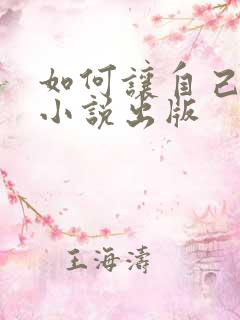 如何讓自己
小說出版
王海濤